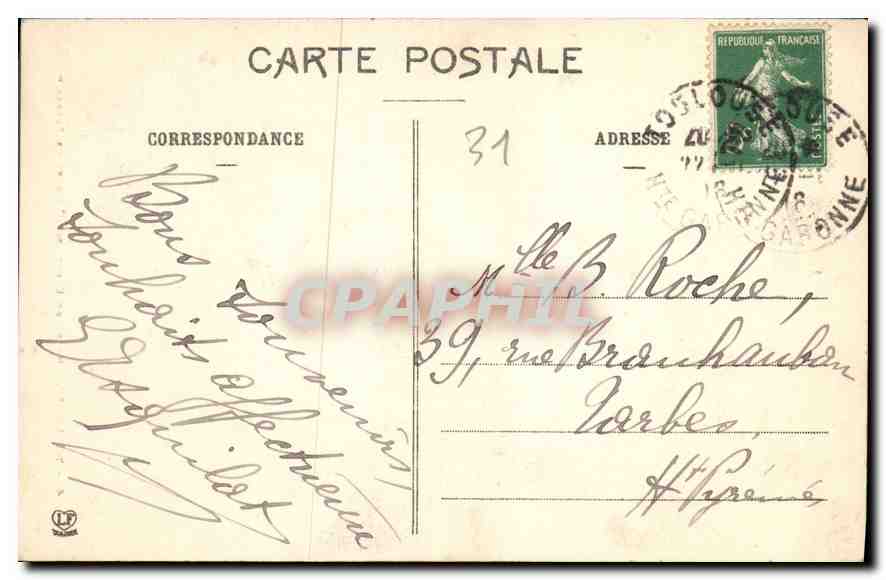 CARTE POSTALE
CORRESPONDANCE
31
ADRESSE
REPUBLIQUE FRANÇAISE
POSTES
TOULOUSE
Hte GARONNE
GARONNE
Bons souvenirs,
souhaits affectueux
Mlle B. Roche,
39, rue Brauhauban
Tarbes.
Htes Pyrénées
CPAPHIL
LF